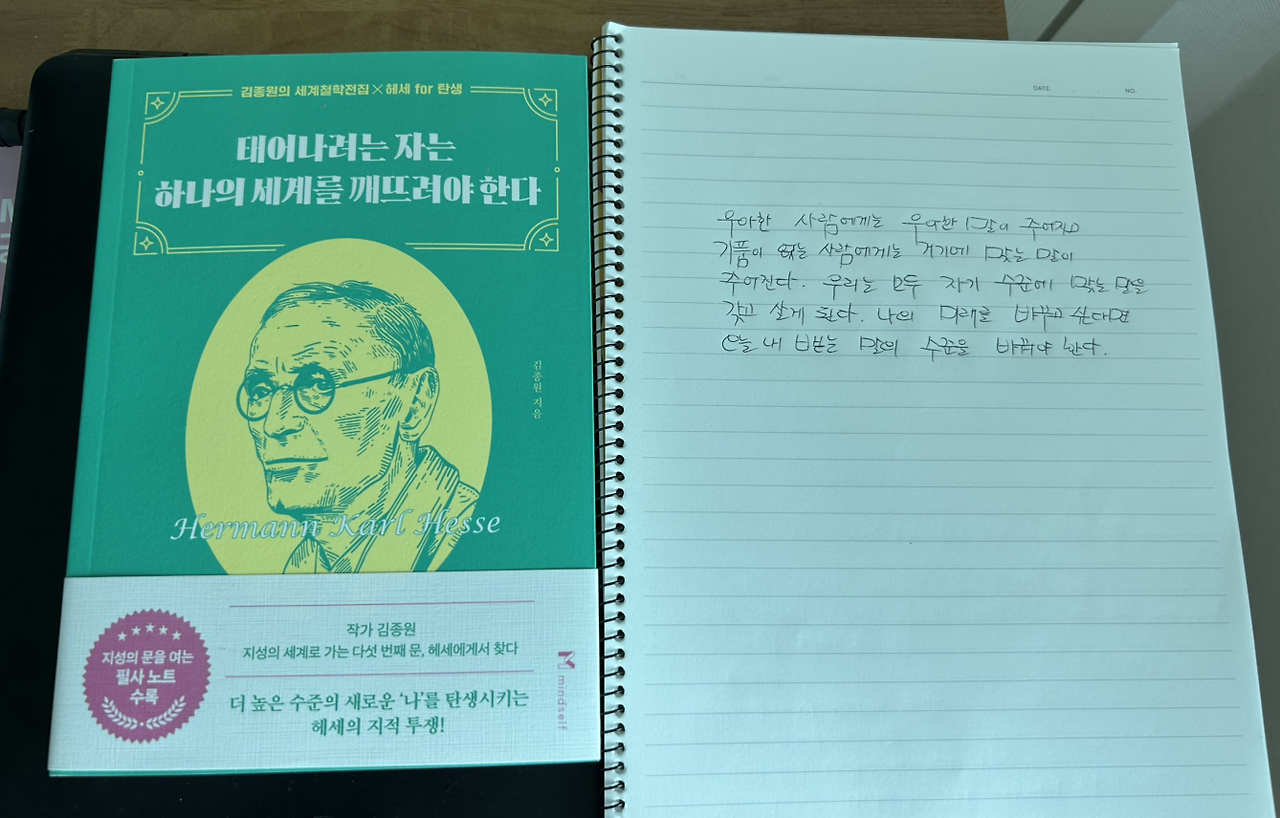 김종원의 세계철학전집×헤세 for 탄생
태어나려는 자는
하나의 세계를 깨뜨려야 한다
김종원 지음
Hermann Karl Hesse
지성의 문을 여는
필사 노트
수록
작가 김종원
지성의 세계로 가는 다섯 번째 문, 헤세에게서 찾다
더 높은 수준의 새로운 ‘나’를 탄생시키는
헤세의 지적 투쟁!
mindself
DATE. . .
NO.
우아한 사람에게는 우아한 말이 주어지고
기품이 없는 사람에게는 거기에 맞는 말이
주어진다. 우리는 모두 자기 수준에 맞는 말을
갖고 살게 된다. 나의 미래를 바꾸고 싶다면
오늘 내 뱉는 말의 수준을 바꿔야 한다.